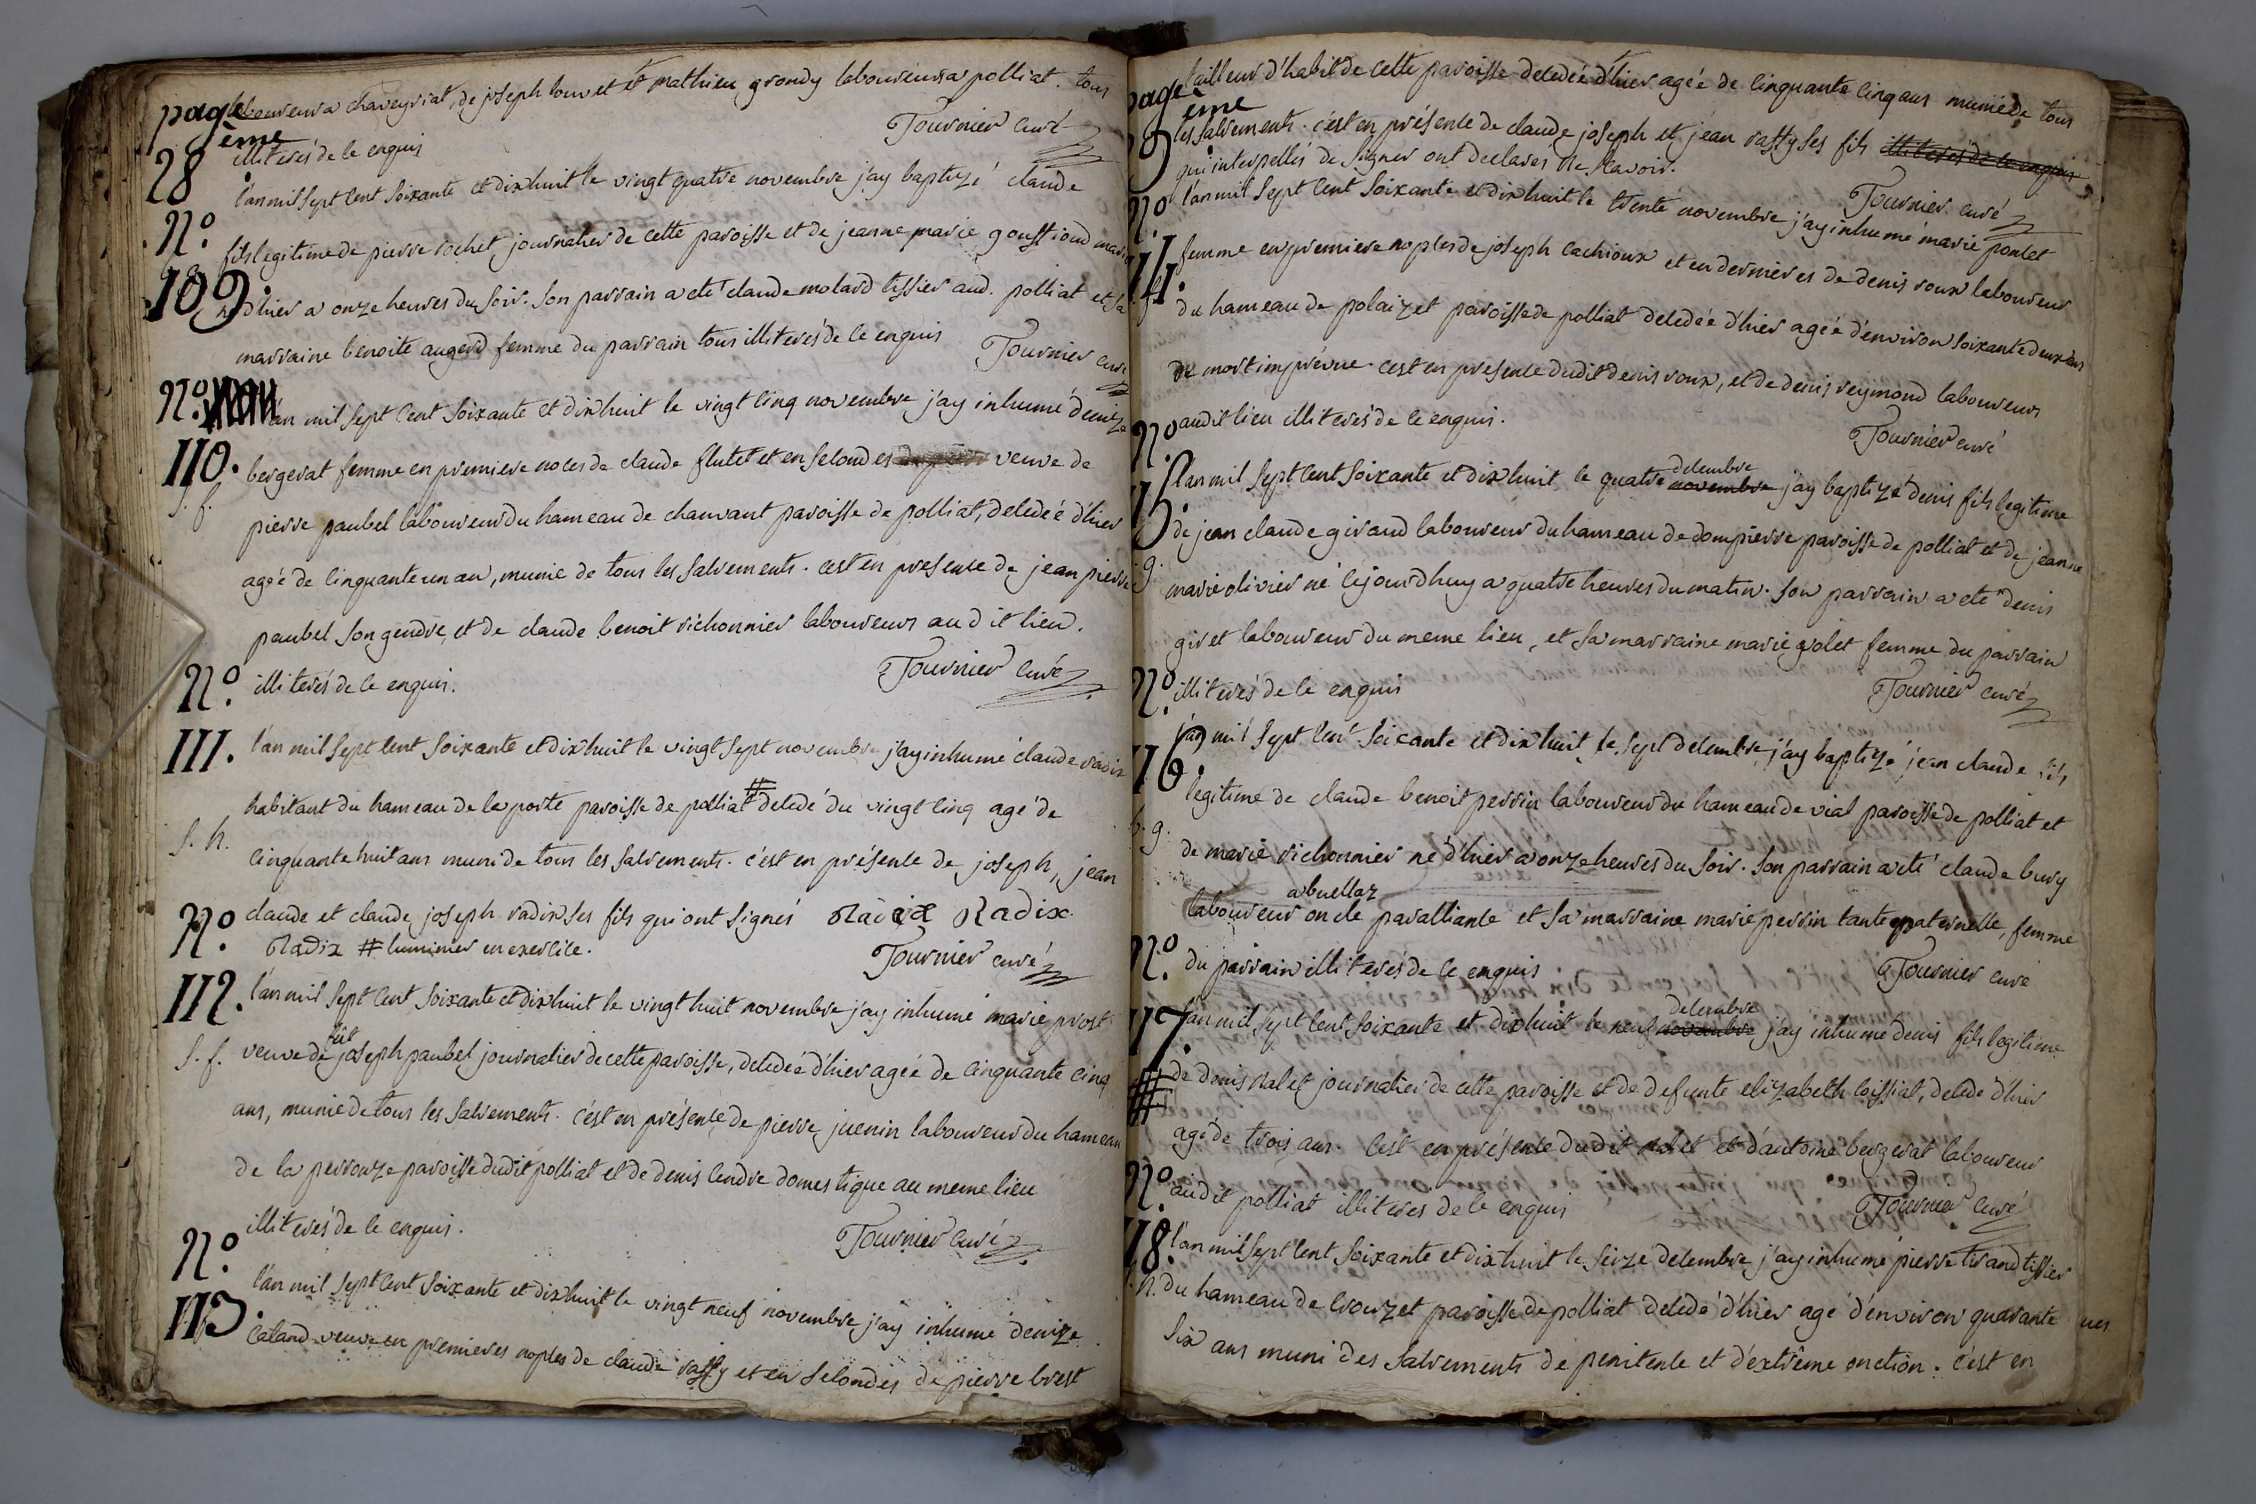 page
28ème
laboureur a chaveyriat, de joseph louvet et mathieu grondy laboureur a polliat. tous
illiterés de ce enquis
Tournier curé
N°. 109.
l'an mil sept cent soixante et dix huit le vingt quatre novembre j'ay baptizé claude
fils legitime de pierre rochet journalier de cette paroisse et de jeanne marie goustioud
né d'hier a onze heures du soir. son parrain a eté claude molard tissier aud. polliat et sa
marraine benoite augerd femme du parrain tous illiterés de ce enquis
Tournier curé
N°. 110.
s. f.
l'an mil sept cent soixante et dix huit le vingt cinq novembre j'ay inhumé denize
bergerat femme en premiere noces de claude flutet et en secondes veuve de
pierre paubel laboureur du hameau de chauvant paroisse de polliat, decedeé d'hier
ageé de cinquante un an, munie de tous les sacrements. c'est en presence de jean pierre
paubel son gendre, et de claude benoit richonnier laboureurs au d it lieu.
illiterés de ce enquis.
Tournier curé
N°. 111.
s. h.
l'an mil sept cent soixante et dix huit le vingt sept novembre j'ay inhumé claude radix
habitant du hameau de la poste paroisse de polliat # decedé du vingt cinq agé de
cinquante huit ans muni de tous les sacrements. c'est en présence de joseph, jean
claude et claude joseph radix ses fils qui ont signés Radix Radix.
Radix # luminier en exercice.
Tournier curé
N°. 112.
s. f.
l'an mil sept cent soixante et dix huit le vingt huit novembre j'ay inhumé marie prost
veuve de fût joseph paubel journalier de cette paroisse, decedeé d'hier ageé de cinquante cinq
ans, munie de tous les sacrements. c'est en présence de pierre juenin laboureur du hameau
de la perrouze paroisse dudit polliat et de denis cendre domestique au meme lieu
illiterés de ce enquis.
Tournier curé
N°. 113.
l'an mil sept cent soixante et dix huit le vingt neuf novembre j'ay inhumé denize
caland veuve en premieres noples de claude raffy et en secondes de pierre brest
page
29ème
tailleur d'habit de cette paroisse decedeé d'hier ageé de cinquante cinq ans munie de tous
les sacrements. c'est en présence de claude joseph et jean raffy ses fils illiterés de ce enquis
qui interpellés de signer ont declarés ne sçavoir.
Tournier curé
N° 114.
s. f.
l'an mil sept cent soixante et dix huit le trente novembre j'ay inhumé marie poulet
femme en premiere noples de joseph cachioux et en dernieres de denis roux laboureur
du hameau de polaizet paroisse de polliat decedeé d'hier ageé d'environ soixante deux ans
de mort imprévue. c'est en presence dudit denis roux, et de denis reymond laboureurs
audit lieu illiterés de ce enquis.
Tournier curé
N° 115.
b. g.
l'an mil sept cent soixante et dix huit le quatre novembre decembre j'ay baptizé denis fils legitime
de jean claude giraud laboureur du hameau de dompierre paroisse de polliat et de jeanne
marie olivier né cejourd'huy a quatre heures du matin. son parrain a eté denis
giret laboureur du meme lieu, et sa marraine marie volet femme du parrain
illiterés de ce enquis
Tournier curé
N°. 116.
b. g.
l'an mil sept cent soixante et dix huit le sept decembre j'ay baptizé jean claude fils
legitime de claude benoit perrin laboureur du hameau de vial paroisse de polliat et
de marie richonnier né d'hier a onze heures du soir. son parrain a eté claude buvy
laboureur abuellaz oncle par alliance et sa marraine marie perrin tante paternelle, femme
du parrain illiterés de ce enquis
Tournier curé
N°. 117.
l'an mil sept cent soixante et dix huit le neuf novembre decembre j'ay inhumé denis fils legitime
de denis ralet journalier de cette paroisse et de defunte elizabeth loissiat, decedé d'hier
agé de trois ans. c'est en présence dudit ralet et d'antoine bergerat laboureur
audit polliat illiterés de ce enquis
Tournier curé
N°. 118.
s. h.
l'an mil sept cent soixante et dix huit le seize decembre j'ay inhumé pierre tirand tissier
du hameau de crouzet paroisse de polliat decedé d'hier agé d'environ quarante
six ans muni des sacrements de penitence et d'extrême onction. c'est en